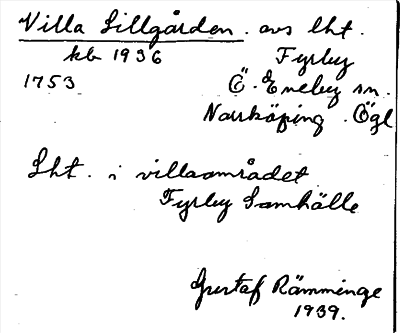 Villa Lillgården. avs lht.
kb 1936 Fyrby
1753 Ö. Eneby sn.
Norrköping. Ögl
Lht. i villaområdet
Fyrby Samhälle
Gustaf Rämminge
1939.